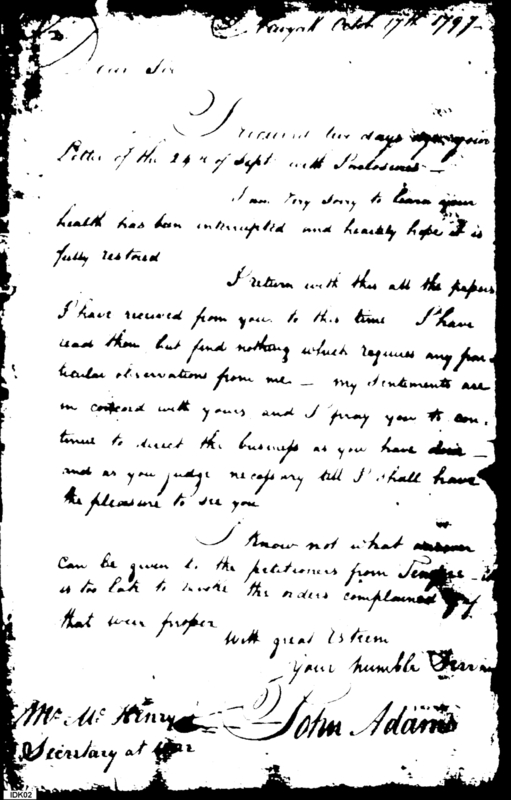 Octob 17th 1797
Dear Sir
I received two days ago your
Letter of the 24th of Sept. with Inclosures —
I am very sorry to learn your
health has been interrupted and heartily hope it is
fully restored
I return with this all the papers
I have received from you to this time I have
read them but find nothing which requires any par
ticular observations from me — my sentiments are
in concord with yours and I pray you to con.
tinue to direct the business as you have done —
and as you judge necessary till I shall have
the pleasure to see you
I know not what answer
can be given to the petitioners from
is too late to revoke the orders complained of if
that were proper
with great Esteem
Your humble Servan
Mr. Mc Henry John Adams
Secretary at War
IDK02